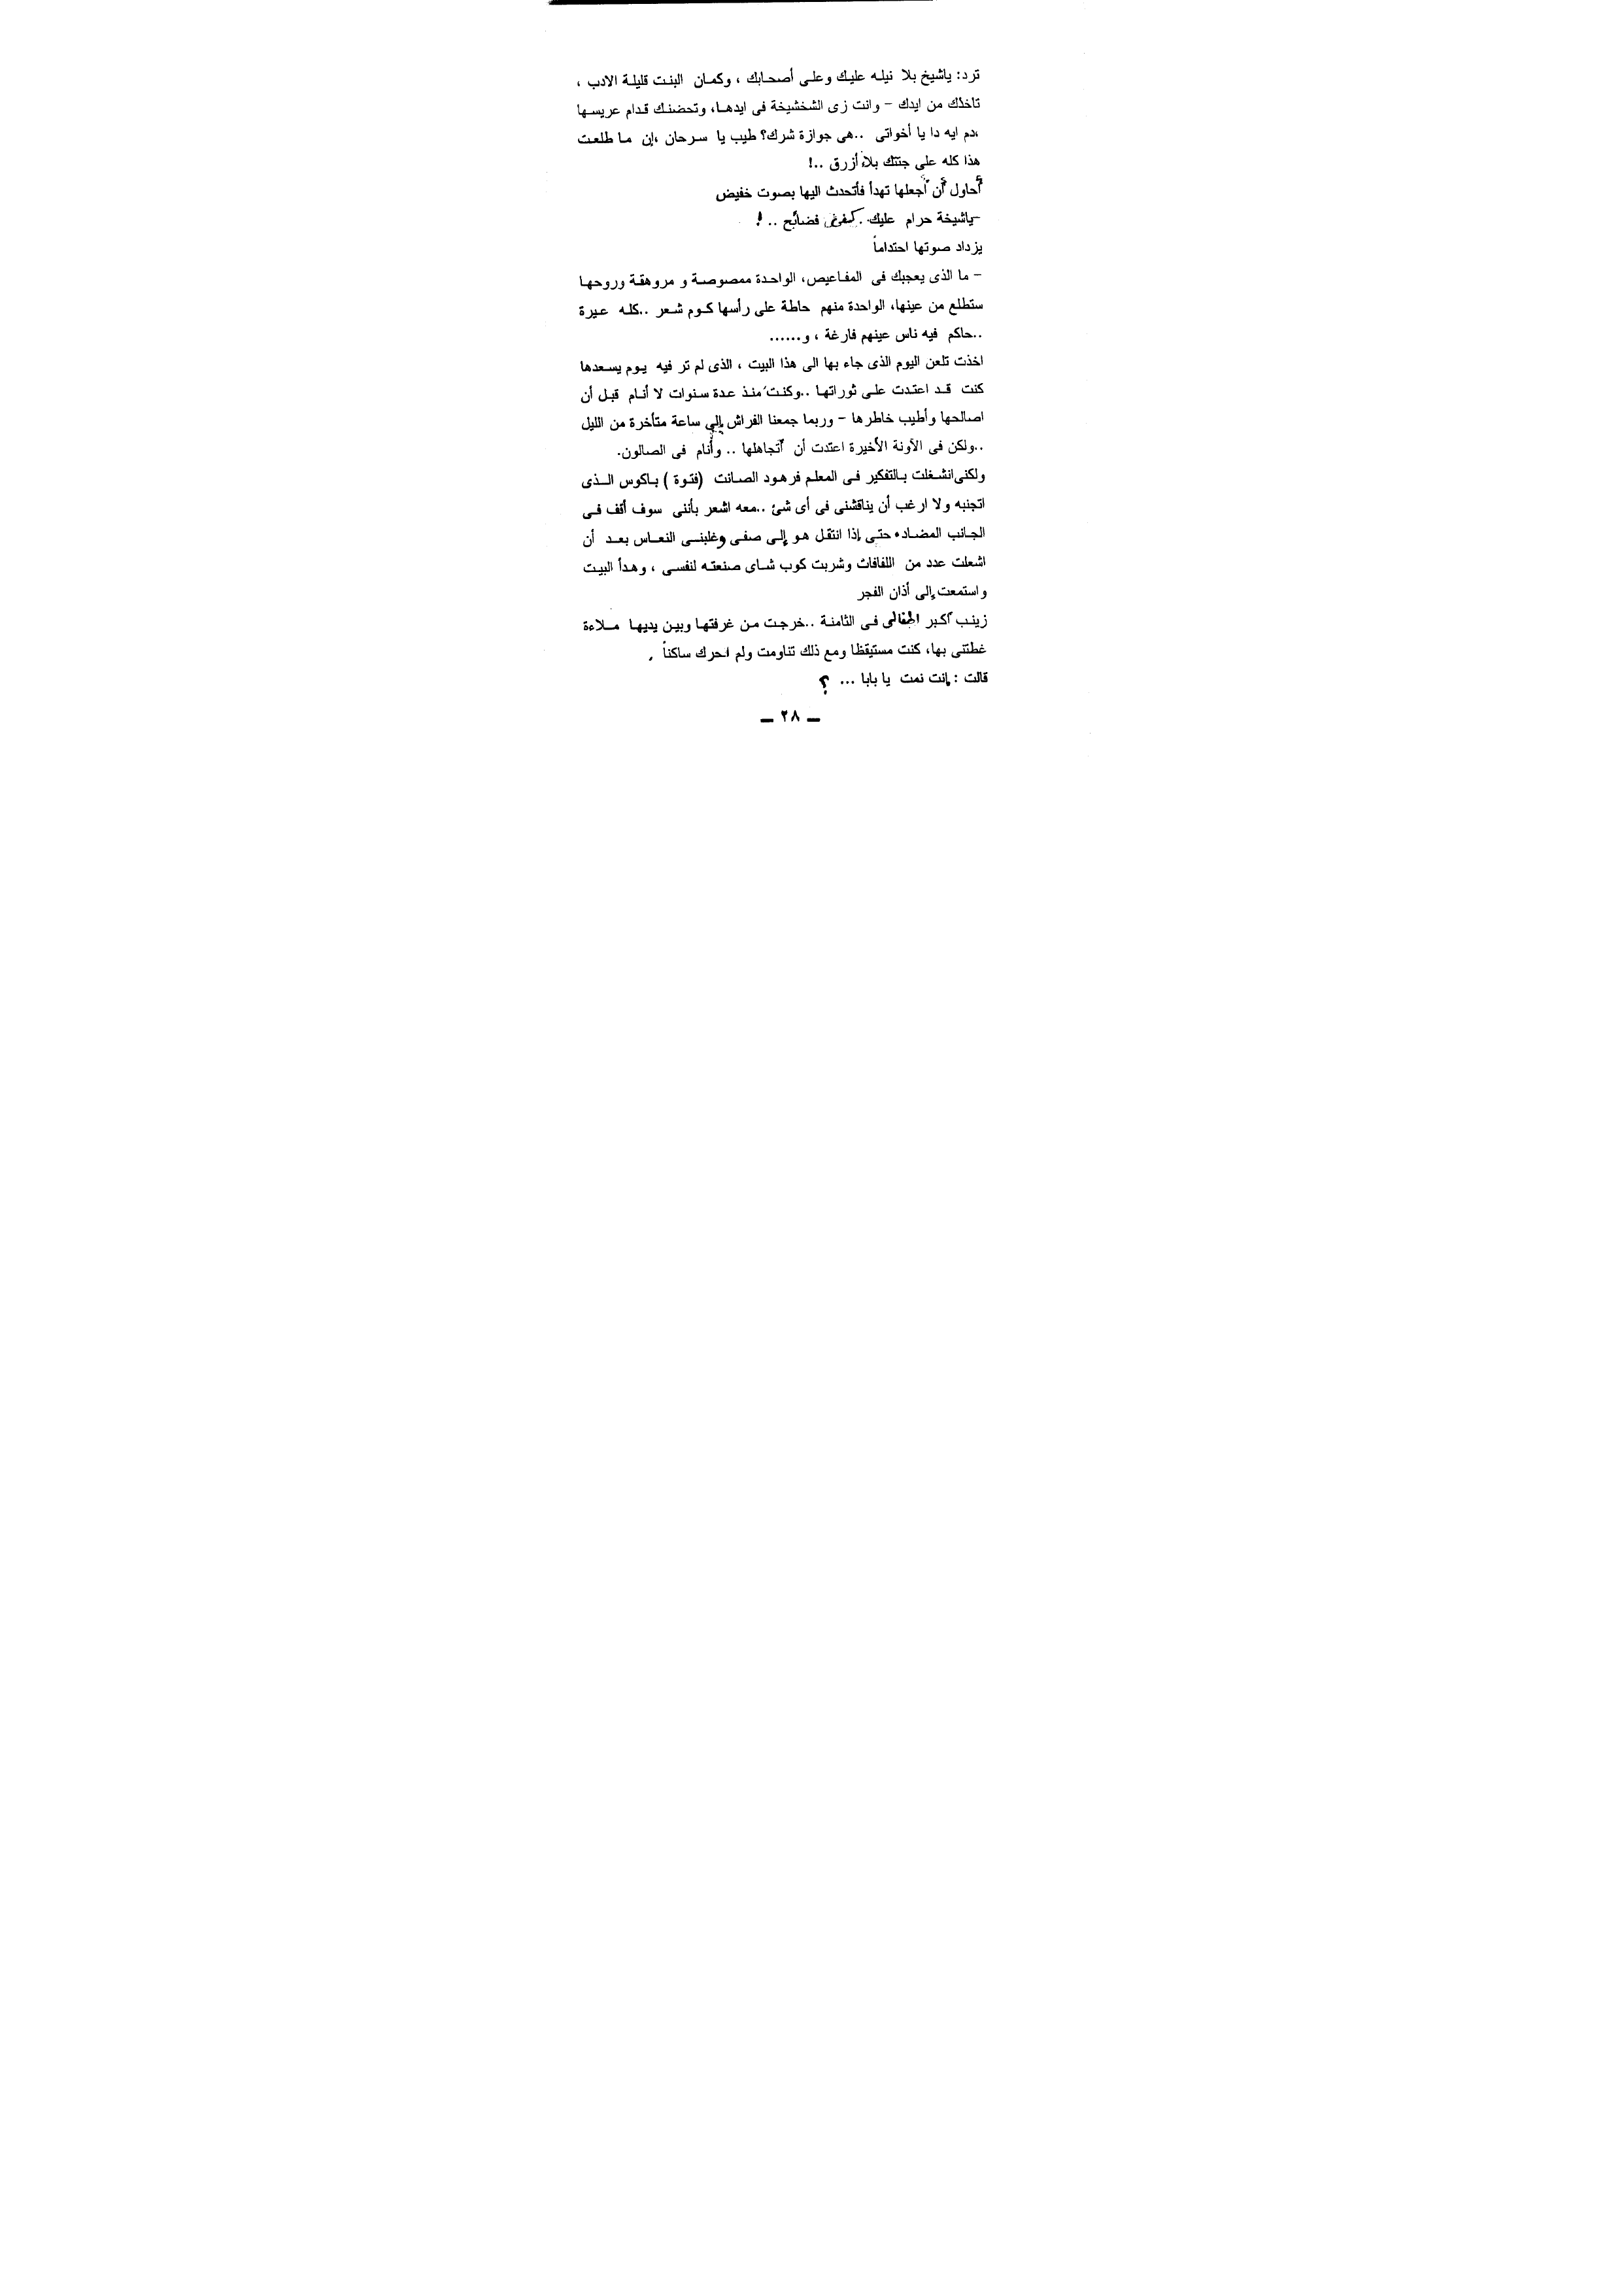 ترد: ياشيخ بلا نيله عليك وعلى أصحابك ، وكمان البنت قليلة الادب ،
تاخذك من ايدك – وانت زى الشخشيخة فى ايدها، وتحضنك قدام عريسها
،دم ايه دا يا أخواتى ..هى جوازة شرك؟ طيب يا سرحان ،إن ما طلعت
هذا كله على جتتك بلاء أزرق ..!
أحاول أن أجعلها تهدأ فأتحدث اليها بصوت خفيض
-ياشيخة حرام عليك. فضائح ..!
يزداد صوتها احتداماً
– ما الذى يعجبك فى المفاعيص، الواحدة ممصوصة و مروهقة وروحها
ستطلع من عينها، الواحدة منهم حاطة على رأسها كوم شعر ..كله عيرة
..حاكم فيه ناس عينهم فارغة ، و......
اخذت تلعن اليوم الذى جاء بها الى هذا البيت ، الذى لم تر فيه يوم يسعدها
كنت قد اعتدت على ثوراتها ..وكنت منذ عدة سنوات لا أنام قبل أن
اصالحها وأطيب خاطرها – وربما جمعنا الفراش إلى ساعة متأخرة من الليل
..ولكن فى الآونة الأخيرة اعتدت أن أتجاهلها .. وأنام فى الصالون.
ولكنى انشغلت بالتفكير فى المعلم فرهود الصانت (فتوة ) باكوس الذى
اتجنبه ولا ارغب أن يناقشنى فى أى شئ ..معه اشعر بأننى سوف أقف فى
الجانب المضاده حتى إذا انتقل هو إلى صفى وغلبنى النعاس بعد أن
اشعلت عدد من اللفافات وشربت كوب شاى صنعته لنفسى ، وهدأ البيت
واستمعت إلى أذان الفجر
زينب أكبر أطفالى فى الثامنة ..خرجت من غرفتها وبين يديها ملاءة
غطتنى بها، كنت مستيقظا ومع ذلك تناومت ولم احرك ساكناً .
قالت : إنت نمت يا بابا ... ؟
– ٢٨ –